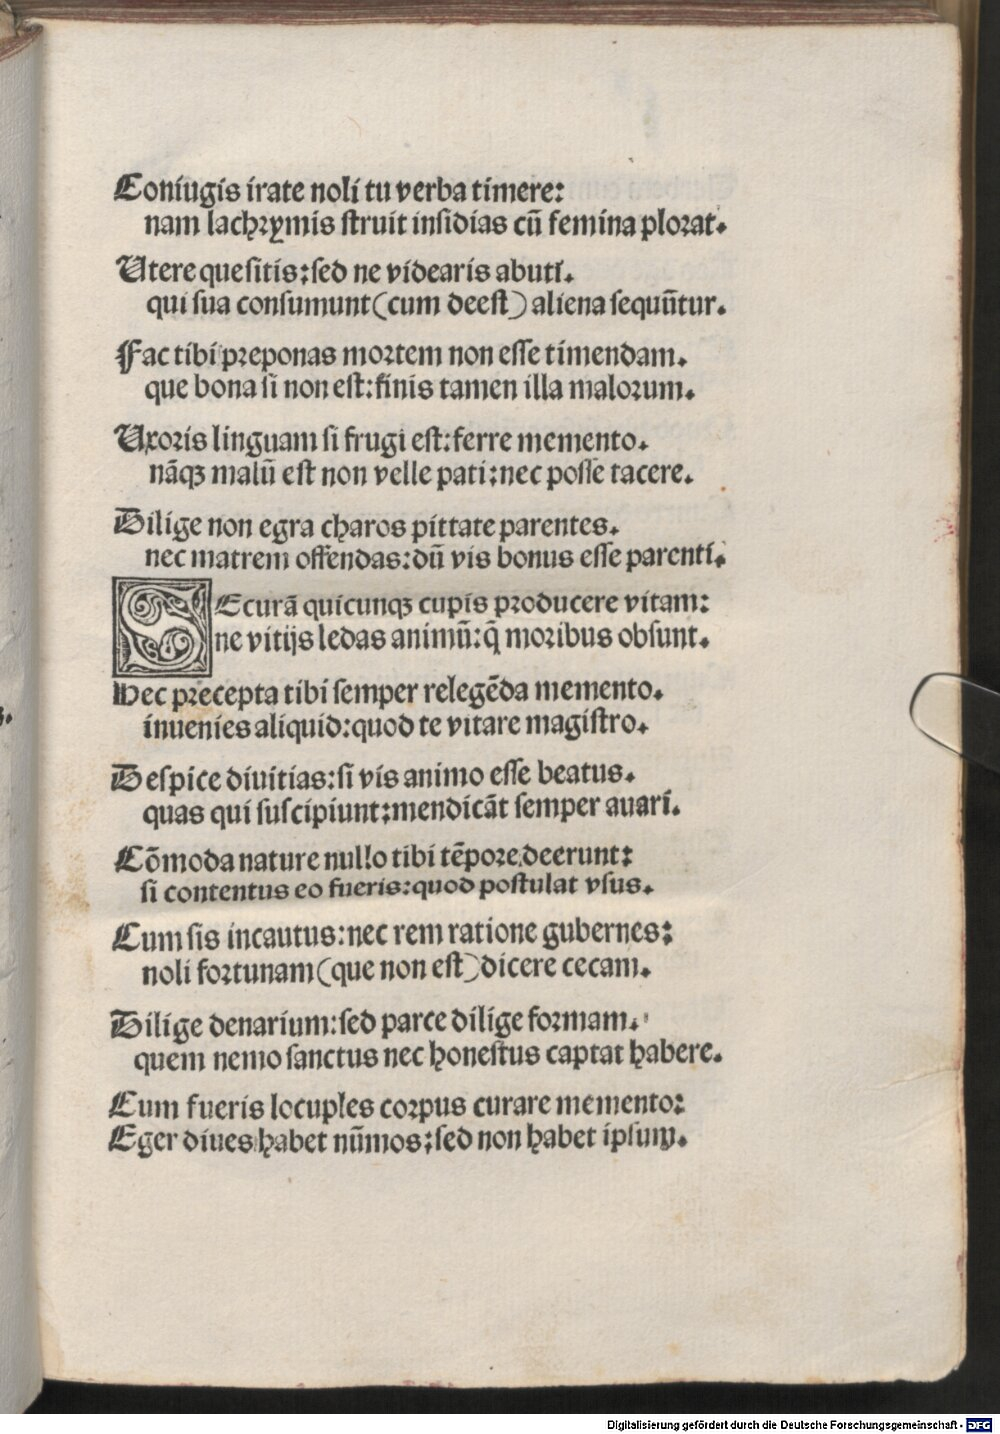 Coniugis irate noli tu verba timere:
nam lachrymis struit insidias cū femina plorat.
Utere quesitis: sed ne videaris abuti.
qui sua consumunt (cum deest) aliena sequūtur.
Fac tibi preponas mortem non esse timendam.
que bona si non est: finis tamen illa malorum.
Uxoris linguam si frugi est: ferre memento.
nāqꝫ malū est non velle pati: nec posse tacere.
Dilige non egra charos pittate parentes.
nec matrem offendas: dū vis bonus esse parenti.
SEcurā quicunqꝫ cupis producere vitam:
ne vitijs ledas animū: q̄ moribus obsunt.
Hec precepta tibi semper relegēda memento.
inuenies aliquid: quod te vitare magistro.
Despice diuitias: si vis animo esse beatus.
quas qui suscipiunt: mendicāt semper auari.
Cōmoda nature nullo tibi tēpore deerunt:
si contentus eo fueris: quod postulat vsus.
Cum sis incautus: nec rem ratione gubernes:
noli fortunam (que non est) dicere cecam.
Dilige denarium: sed parce dilige formam.
quem nemo sanctus nec honestus captat habere.
Cum fueris locuples corpus curare memento:
Eger diues habet nūmos: sed non habet ipsum.
Digitalisierung gefördert durch die Deutsche Forschungsgemeinschaft - DFG